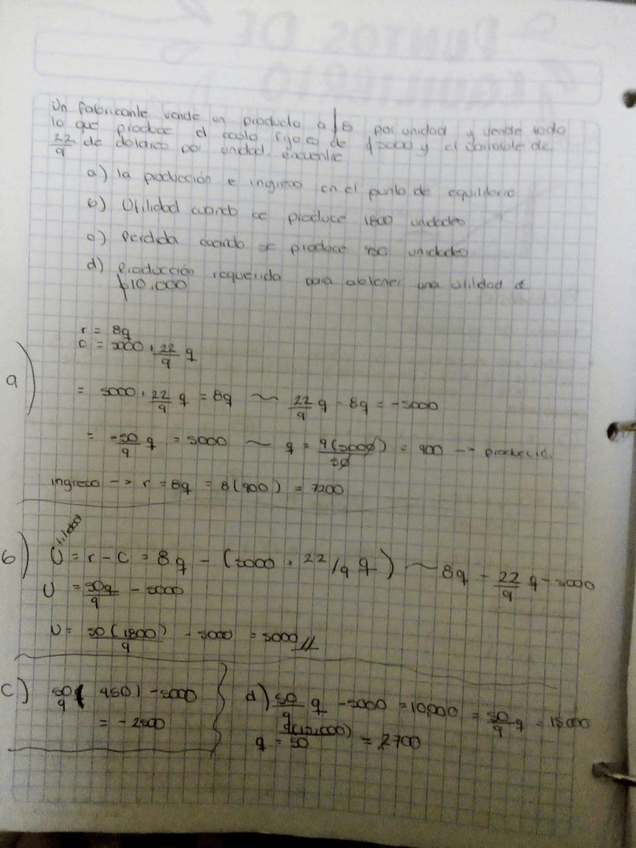 PUNTOS DE
EQUILIBRIO
Un fabricante vende un producto a $8 por unidad y vende todo
lo que produce el costo fijo es de $5000 y el variable de
22/9 de dolares por unidad encuentre
a) la producción e ingreso en el punto de equilibrio
b) Utilidad cuando se produce 1800 unidades
c) Perdida cuando se produce 450 unidades
d) producción requerida para obtener una utilidad de
$10,000
r = 8q
a) c = 5000 + 22/9 q
= 5000 + 22/9 q = 8q ~ 22/9 q - 8q = -5000
= -50/9 q = 5000 ~ q = 9(5000)/50 = 900 --> producció
ingreso --> r = 8q = 8(900) = 7200
Utilidad
b) U = r - c = 8q - (5000 + 22/9 q) ~ 8q - 22/9 q - 5000
U = 50q/9 - 5000
U = 50(1800)/9 - 5000 = 5000//
c) 50/9 (450) - 5000
= -2500
d) 50/9 q - 5000 = 10,000 = 50/9 q = 15000
q = 9(15,000)/50 = 2700